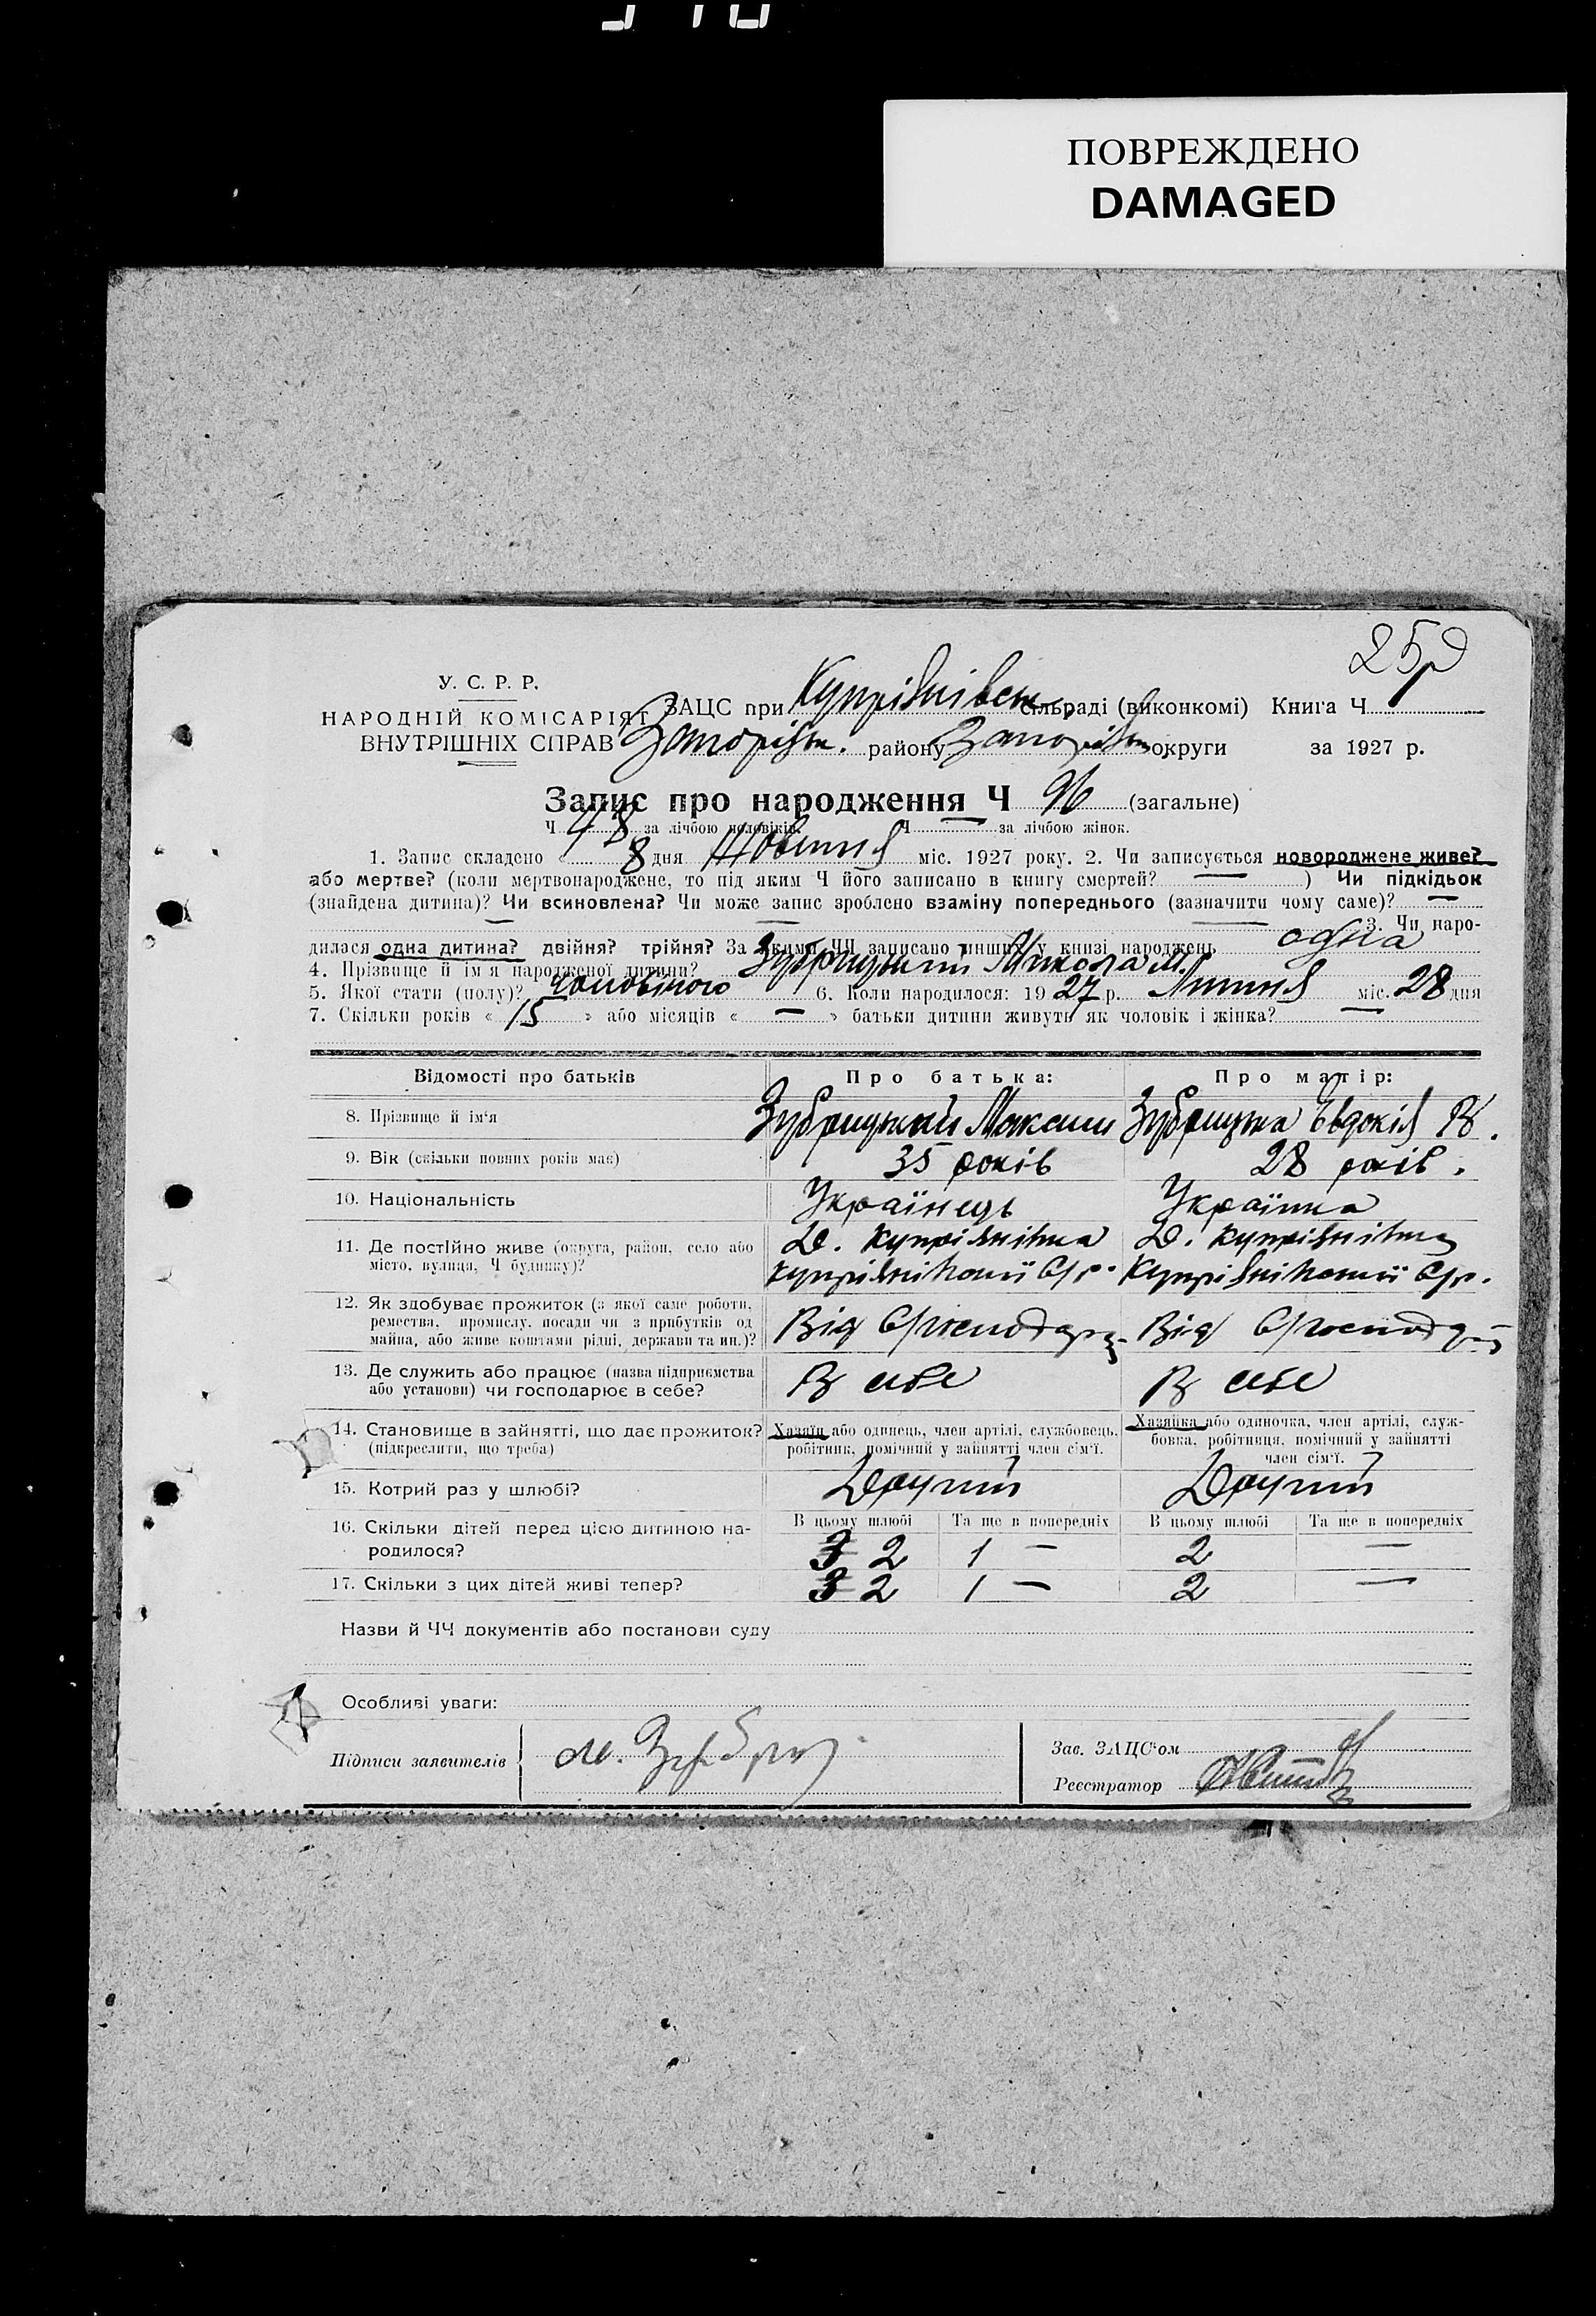 ПОВРЕЖДЕНО
DAMAGED
У. С. Р. Р.
НАРОДНІЙ КОМІСАРІЯТ
ВНУТРІШНІХ СПРАВ
ЗАЦС при Купріянівськ. сільраді (виконкомі) Книга Ч
Запоріжк. району Запоріжк округи за 1927 р.
Запис про народження Ч 96 (загальне)
Ч 48 за лічбою чоловіків. Ч — за лічбою жінок.
1. Запис складено « 8 дня Жовтня міс. 1927 року. 2. Чи записується новороджене живе?
або мертве? (коли мертвонароджене, то під яким Ч його записано в книгу смертей? — ) Чи підкідьок
(знайдена дитина)? Чи всиновлена? Чи може запис зроблено взаміну попереднього (зазначити чому саме)? —
— — 3. Чи наро-
дилася одна дитина? двійня? трійня? За якими ЧЧ записано инших у книзі народжень одна
4. Прізвище й ім'я народженої дитини? Зубрицький Микола М.
5. Якої стати (полу)? чоловічого 6. Коли народилося: 1927 р. Липня міс. 28 дня
7. Скільки років « 15 » або місяців « — » батьки дитини живуть як чоловік і жінка? —
Відомості про батьків Про батька: Про матір:
8. Прізвище й ім'я Зубрицький Максим Зубрицька Евдокія В.
9. Вік (скільки повних років має) 35 років 28 років.
10. Національність Українець Українка
11. Де постійно живе (округа, район, село або Д. Купріянівка Д. Купріянівка
місто, вулиця, Ч будинку)? Купріянівської С/р. Купріянівської С/р.
12. Як здобуває прожиток (з якої саме роботи,
ремества, промислу, посади чи з прибутків од
майна, або живе коштами рідні, держави та ин.)? Від С/господар. Від С/господар.
13. Де служить або працює (назва підприємства
або установи) чи господарює в себе? В себе В себе
14. Становище в зайнятті, що дає прожиток?
(підкреслити, що треба)
Хазяїн або одинець, член артілі, службовець,
робітник, помічний у зайнятті член сім'ї.
Хазяйка або одиночка, член артілі, служ-
бовка, робітниця, помічний у зайнятті
член сім'ї.
15. Котрий раз у шлюбі? Другий Другий
В цьому шлюбі Та ще в попередніх В цьому шлюбі Та ще в попередніх
16. Скільки дітей перед цією дитиною на-
родилося? 3 2 1 — 2 —
17. Скільки з цих дітей живі тепер? 3 2 1 — 2 —
Назви й ЧЧ документів або постанови суду
Особливі уваги:
Підписи заявителів М. Зубриц
Зав. ЗАЦС'ом
Реєстратор